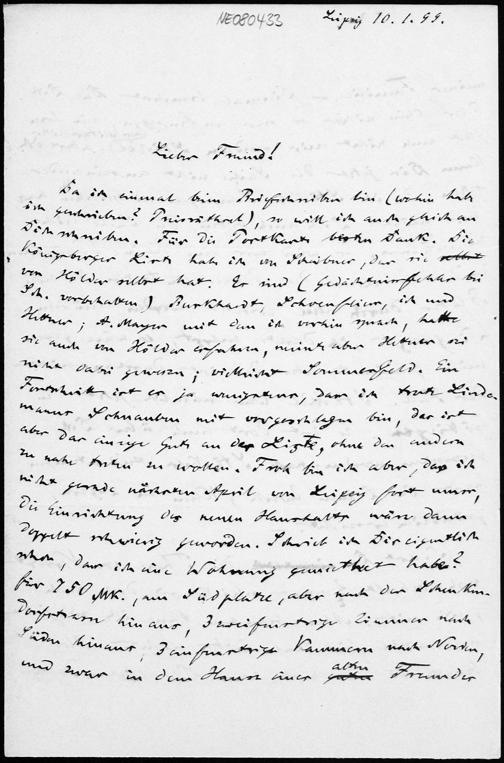 NE080433
Leipzig 10.1.99.
Lieber Freund!
Da ich einmal beim Briefschreiben bin (wohin hab
ich geschrieben? Preisräthsel), so will ich auch gleich an
Dich schreiben. Für die Postkarte besten Dank. Die
Königsberger Liste hab ich von Scheibner, der sie selbst
von Hölder selbst hat. Es sind (Gedächtnissfehler bei
Sch. vorbehalten) Burkhardt, Schoenflies, ich und
Hettner; A. Mayer mit dem ich vorhin sprach, hatte
sie auch von Hölder erfahren, meinte aber Hettner sei
nicht dabei gewesen; vielleicht Sommerfeld. Ein
Fortschritt ist es ja wenigstens, dass ich trotz Linde-
manns Schnauben mit vorgeschlagen bin, das ist
aber das einzige Gute an der Liste, ohne den andern
zu nahe treten zu wollen. Froh bin ich aber, dass ich
nicht gerade nächsten April von Leipzig fort muss,
die Einrichtung des neuen Haushalts wäre dann
doppelt schwierig geworden. Schrieb ich Dir eigentlich
schon, dass ich eine Wohnung gemiethet habe?
für 750 Mk., am Südplatze, aber nach der Schenken-
dorfstrasse hinaus, 3 zweifenstrige Zimmer nach
Süden hinaus, 3 einfenstrige Kammern nach Norden,
und zwar in dem Hause eines alten Freundes